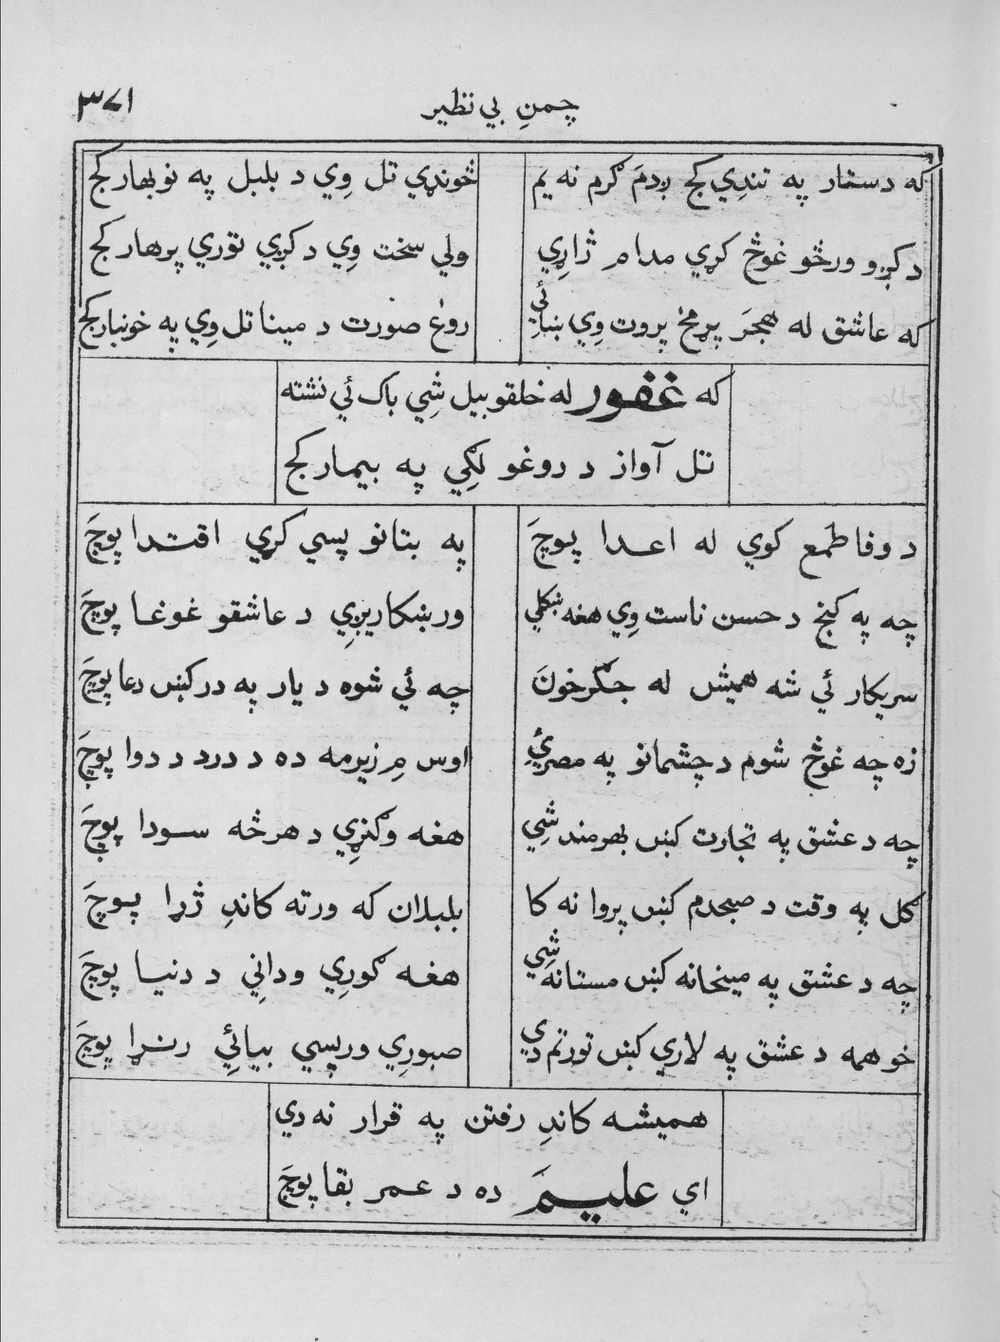 چمنِ بي نظير
۳۷۱
که دستار په تندي کج ږدمَ ګرم نه يم
څونډي تل وِي د بلبل په نوبهار کج
د کږو ورځو غوڅ کړي مدام ژاړِي
ولي سخت وِي د کږي توري پرهار کج
که عاشق له هجرَ پړمخ پروت وِي ښائيِ
روغ صورت د مينا تل وِي په خونبار کج
که غفور له خلقو بيل شِي باک ئي نشته
تل آواز د روغو لګي په بيمار کج
د وفا طمع کوي له اعدا پوچَ
په بتانو پسي کړي اقتدا پوچَ
چه په کنج د حسن ناست وِي هغه ښکلي
ور ښکاريږي د عاشقو غوغا پوچَ
سريکار ئي شه هميش له جګرخونَ
چه ئي شوه د يار په در کښ دعا پوچَ
زه چه غوڅ شوم د چشمانو په مصرئِي
اوس مِ زيرمه ده د درد د دوا پوچَ
چه د عشق په تجارت کښ بهرمند شِي
هغه وګنړِي د هر څه سودا پوچَ
ګل په وقت د صبحدم کښ پروا نه کا
بلبلان که ورته کاندِ ژړا پوچَ
چه د عشق په ميخانه کښ مستانه شِي
هغه ګورِي ودانِي د دنيا پوچَ
خو همه د عشق په لاري کښ تورتم دي
صبورِي ورپسي بيائِي رنړا پوچَ
هميشه کاندِ رفتن په قرار نه دي
اي عليمَ ده د عمر بقا پوچَ